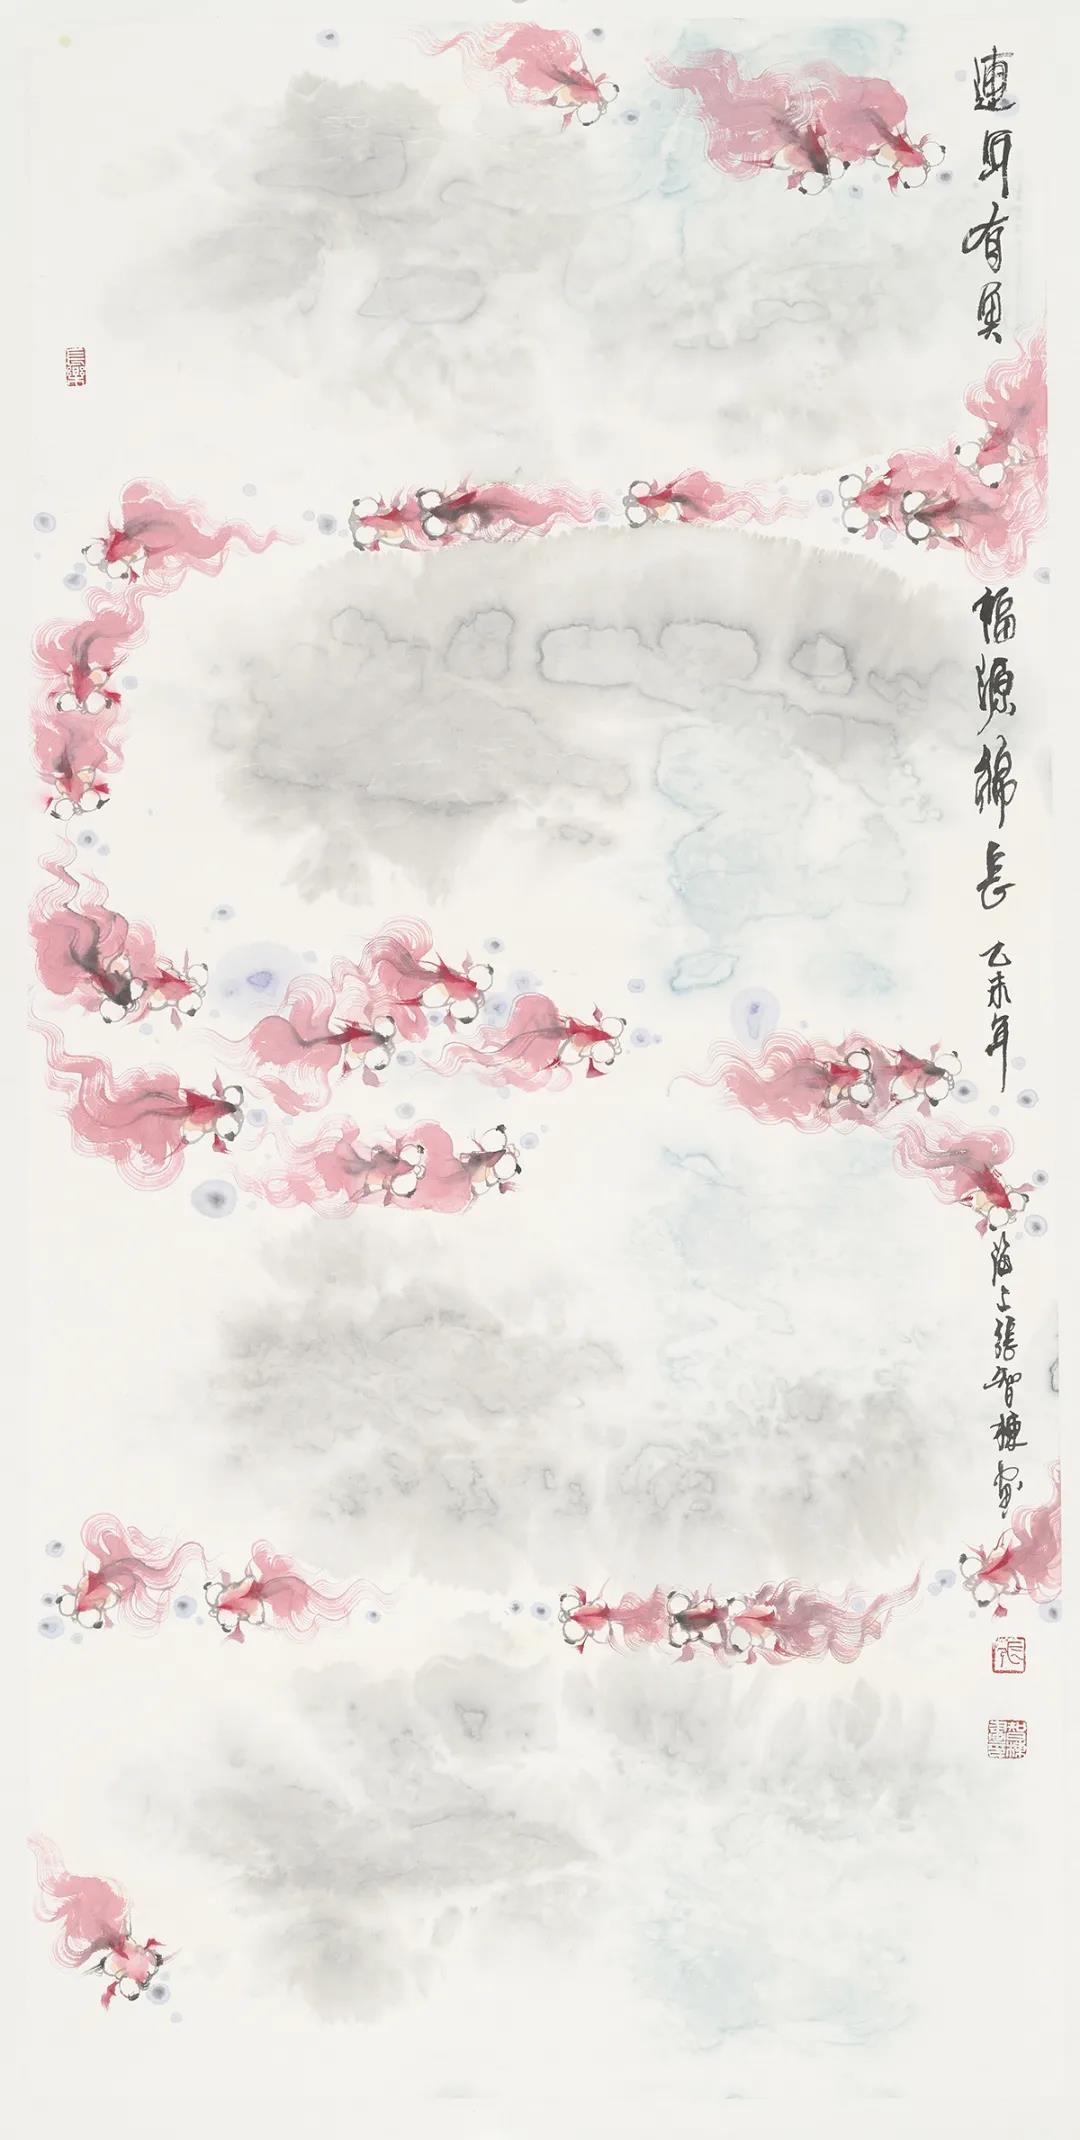 連年有魚 福源綿長 乙未年 海上張智棟畫
張
長樂